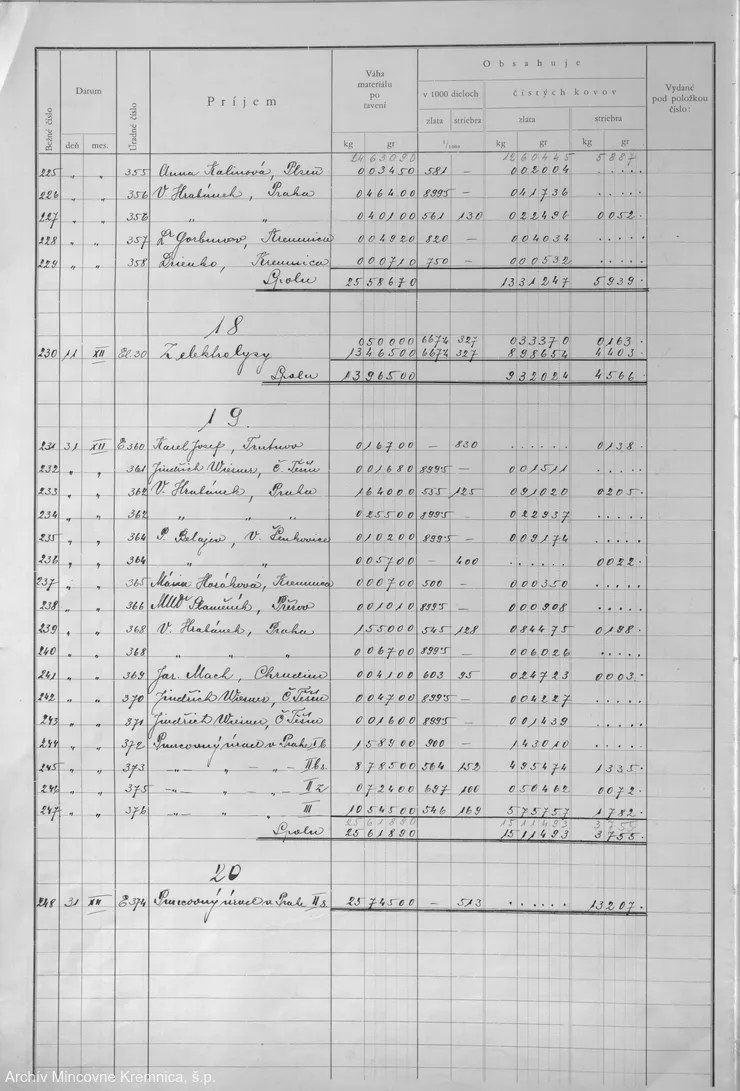 Obsahuje
Bežné číslo | Dátum | Úradné číslo | Príjem | Váha materiálu po tavení | v 1000 dieloch | čistých kovov | Vydané pod položkou číslo:
deň | mes. | kg gr | zlata | striebra | zlata | striebra
1/1000 | kg gr | kg gr
2463090 | 1260445 | 5887
225 „ „ 355 Anna Kalinová, Plzeň 003450 581 — 002004 .....
226 „ „ 356 V. Hrabánek, Praha 046400 8995 — 041736 .....
227 „ „ 356 „ „ 040100 561 130 022496 0052.
228 „ „ 357 Dr Gorbunov, Kremnica 004920 820 — 004034 .....
229 „ „ 358 Drienko, Kremnica 000710 750 — 000532 .....
Spolu 2558670 1331247 5939.
18
050000 6674 327 033370 0163.
230 11 XII El 30 Z elektrolysy 1346500 6674 327 898654 4403.
Spolu 1396500 932024 4566.
19.
231 31 XII E360 Karel Josef, Trutnov 016700 — 830 ...... 0138.
232 „ „ 361 Jindřich Wiesner, Č. Těšín 001680 8995 — 001511 .....
233 „ „ 362 V. Hrabánek, Praha 164000 555 125 091020 0205.
234 „ „ 362 „ „ „ 025500 8995 — 022937 .....
235 „ „ 364 P. Belajev, V. 010200 8995 — 009174 .....
236 „ „ 364 „ „ 005700 — 400 ...... 0022.
237 „ „ 365 Mária Horáková, Kremnica 000700 500 — 000350 .....
238 „ „ 366 MUDr , Přerov 001010 8995 — 000908 .....
239 „ „ 368 V. Hrabánek, Praha 155000 545 128 084475 0198.
240 „ „ 368 „ „ „ 006700 8995 — 006026 .....
241 „ „ 369 Jar. Mach, Chrudim 004100 603 95 024723 0003.
242 „ „ 370 Jindřich Wiesner, Č Těšín 004700 8995 — 004227 .....
243 „ „ 371 Jindřich Wiesner, Č Těšín 001600 8995 — 001439 .....
244 „ „ 372 Puncovný úrad v Prahe I b 158900 900 — 143010 .....
245 „ „ 373 —„— „ —„— II b s. 878500 564 152 495474 1335.
246 „ „ 375 —„— „ —„— II z 072400 697 100 050462 0072.
247 „ „ 376 —„— „ —„— III 1054500 546 169 575757 1782.
2561890 1511493 3755
Spolu 2561890 1511493 3755.
20
248 31 XII E374 Puncovný úrad v Prahe II s. 2574500 — 513 ...... 13207.
Archív Mincovne Kremnica, š.p.